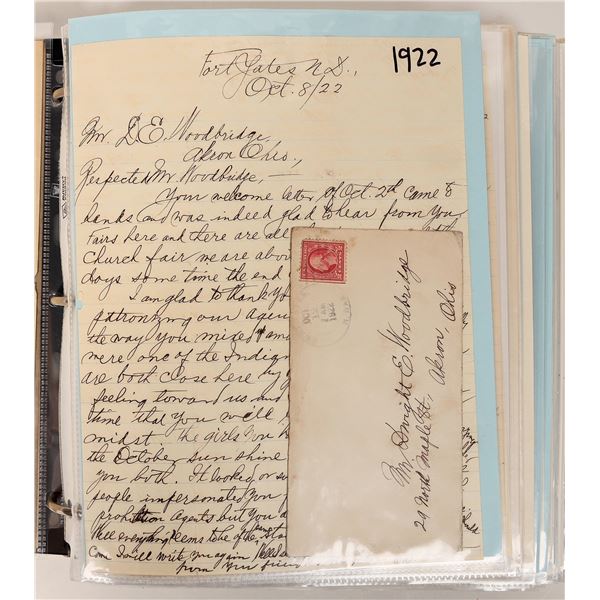 1922
Fort Yates N.D.,
Oct. 8/22
Mr. D E. Woodbridge,
Akron Ohio,
Respected Mr. Woodbridge,—
Your welcome letter of Oct. 2d came to
hands and was indeed glad to hear from you
Fairs here and there are all
Church fair we are abou
days some time the end
I am glad to thank yo
patronizing our agen
the way you mixed am
were one of the Indian
are both close here by
feeling toward us and
time that you will
midst. The girls
the October sun shine
you both. It looked, or
people impersonated you
prohibition Agents but you
Well everything seems to be of the
Come I will write you again
from your friend
1922
Mr. Dwight E. Woodbridge
29 North Maple St., Akron, Ohio